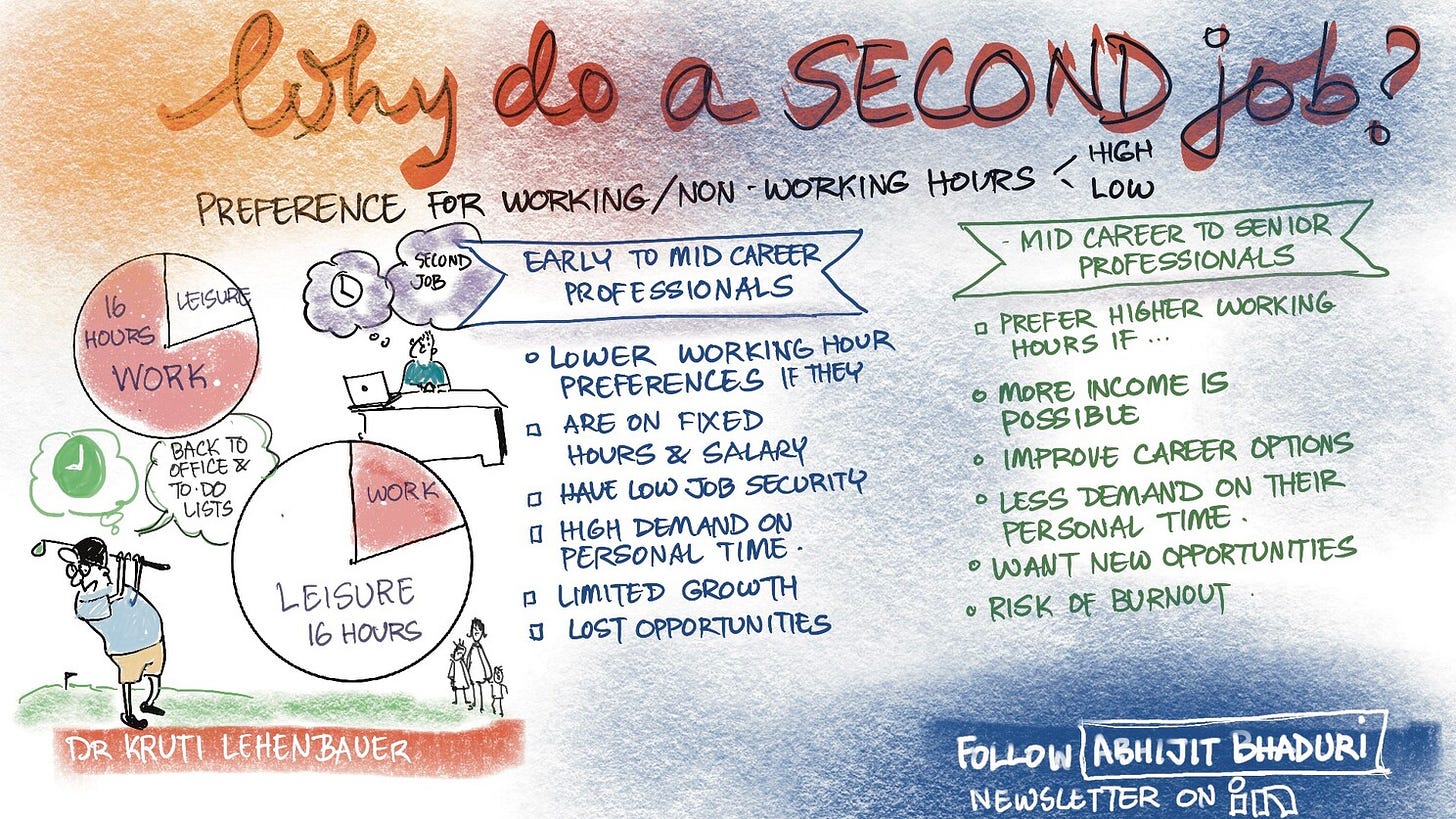 Why do a SECOND job?
PREFERENCE FOR WORKING/NON-WORKING HOURS < HIGH
LOW
16
HOURS
WORK
LEISURE
SECOND
JOB
BACK TO
OFFICE &
TO-DO
LISTS
WORK
LEISURE
16 HOURS
DR KRUTI LEHENBAUER
EARLY TO MID CAREER
PROFESSIONALS
LOWER WORKING HOUR
PREFERENCES IF THEY
ARE ON FIXED
HOURS & SALARY
HAVE LOW JOB SECURITY
HIGH DEMAND ON
PERSONAL TIME.
LIMITED GROWTH
LOST OPPORTUNITIES
- MID CAREER TO SENIOR
PROFESSIONALS
PREFER HIGHER WORKING
HOURS IF ...
MORE INCOME IS
POSSIBLE
IMPROVE CAREER OPTIONS
LESS DEMAND ON THEIR
PERSONAL TIME.
WANT NEW OPPORTUNITIES
RISK OF BURNOUT
FOLLOW ABHIJIT BHADURI
NEWSLETTER ON in